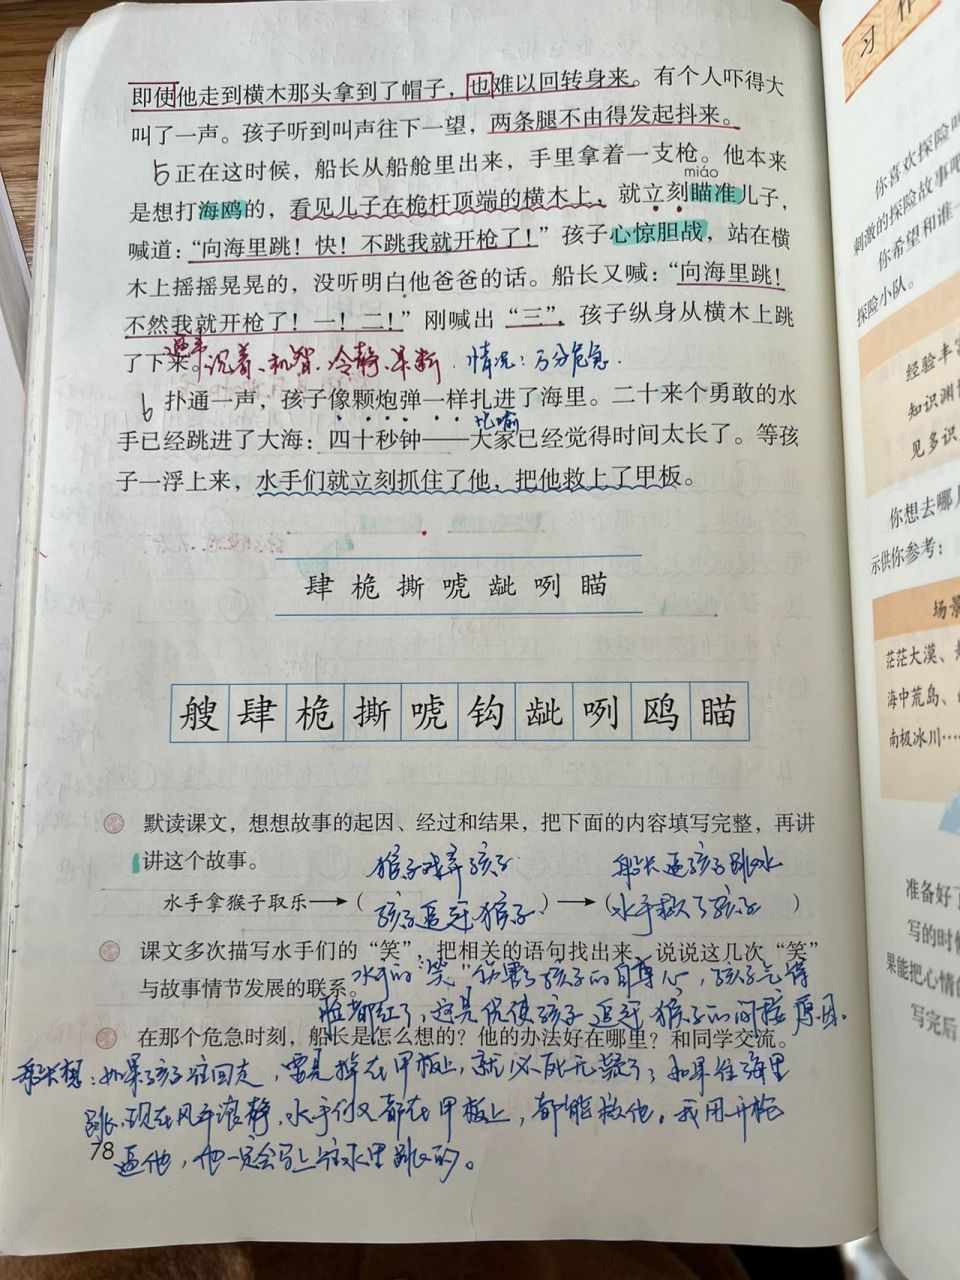 即使他走到横木那头拿到了帽子，也难以回转身来。有个人吓得大
叫了一声。孩子听到叫声往下一望，两条腿不由得发起抖来。
5正在这时候，船长从船舱里出来，手里拿着一支枪。他本来
miáo
是想打海鸥的，看见儿子在桅杆顶端的横木上，就立刻瞄准儿子，
喊道：“向海里跳！快！不跳我就开枪了！”孩子心惊胆战，站在横
木上摇摇晃晃的，没听明白他爸爸的话。船长又喊：“向海里跳！
不然我就开枪了！一！二！”刚喊出“三”，孩子纵身从横木上跳
了下来。沉着、机智、冷静、果断 情况：万分危急.
6 扑通一声，孩子像颗炮弹一样扎进了海里。二十来个勇敢的水
比喻
手已经跳进了大海：四十秒钟——大家已经觉得时间太长了。等孩
子一浮上来，水手们就立刻抓住了他，把他救上了甲板。
肆 桅 撕 唬 龇 咧 瞄
艘 肆 桅 撕 唬 钩 龇 咧 鸥 瞄
默读课文，想想故事的起因、经过和结果，把下面的内容填写完整，再讲
讲这个故事。
猴子戏弄孩子 船长逼孩子跳水
水手拿猴子取乐→（孩子追猴子）→（水手救了孩子）
课文多次描写水手们的“笑”，把相关的语句找出来，说说这几次“笑”
与故事情节发展的联系。
水手的“笑”伤害了孩子的自尊心，孩子气得
脸都红了，这是促使孩子追猴子的间接原因。
在那个危急时刻，船长是怎么想的？他的办法好在哪里？和同学交流。
船长想：如果孩子往回走，要是掉在甲板上，就必死无疑了；如果往海里
跳，现在风平浪静，水手们又都在甲板上，都能救他。我用开枪
逼他，他一定会马上往水里跳的。
78
习作
你喜欢探险吗
刺激的探险故事吧
你希望和谁一
探险小队。
经验丰富
知识渊博
见多识
你想去哪儿
示供你参考：
场景
茫茫大漠、
海中荒岛、
南极冰川…
准备好了
写的时候
果能把心情的
写完后